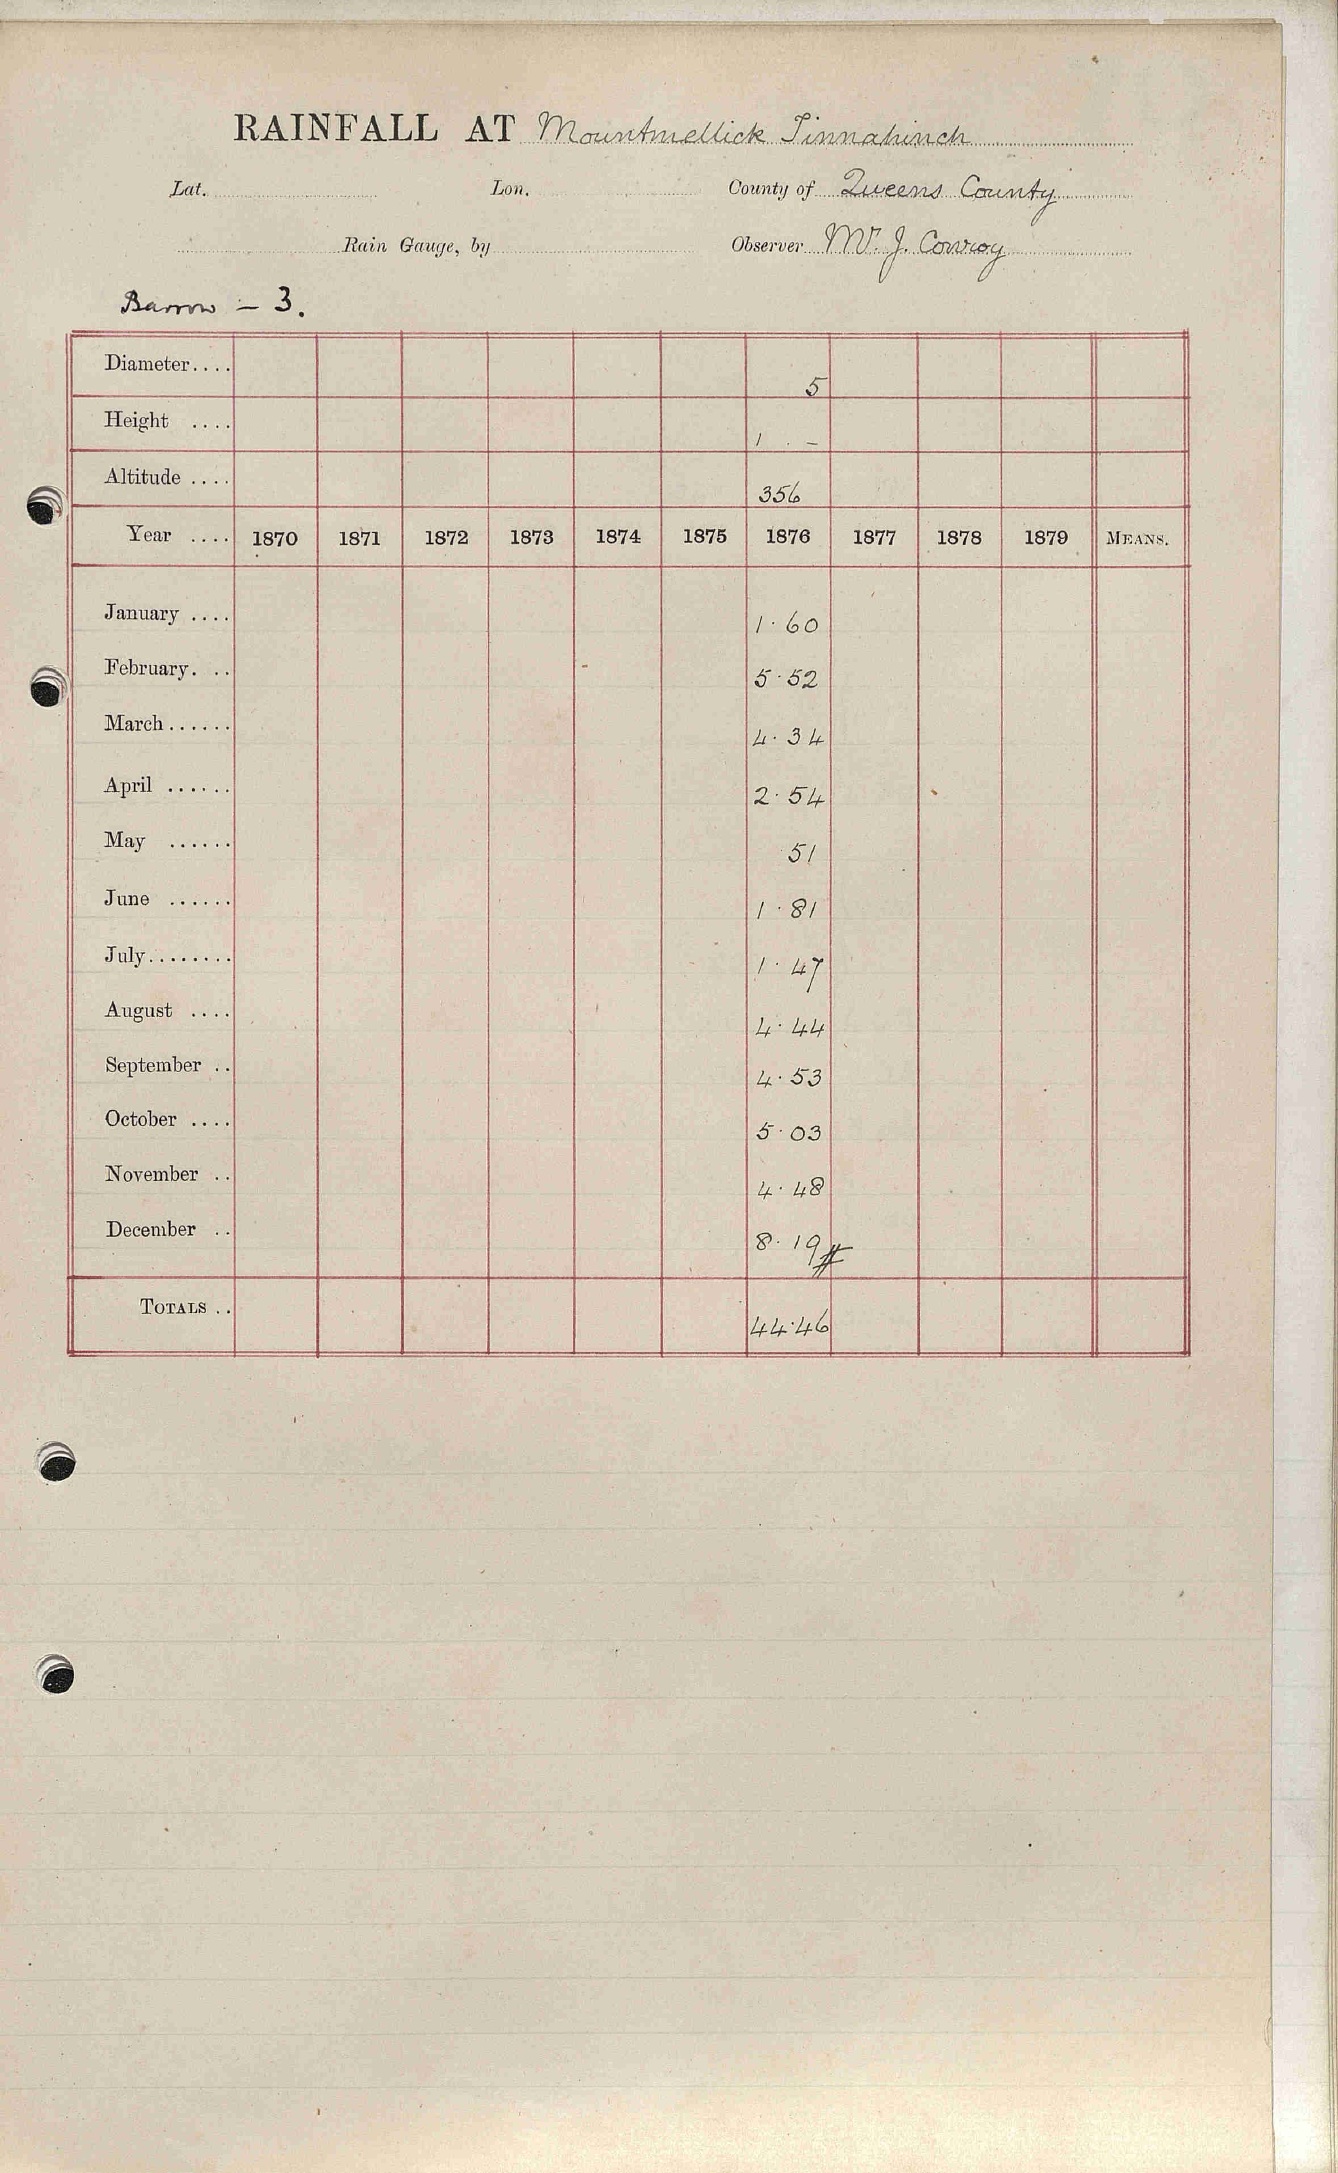 RAINFALL AT Mountmellick Tinnahinch
Lat. Lon. County of Queens County
Rain Gauge, by Observer Mr. J. Conroy
Barrow – 3.
Diameter.... 5
Height .... 1 . –
Altitude .... 356
Year .... 1870 1871 1872 1873 1874 1875 1876 1877 1878 1879 MEANS.
January .... 1.60
February. .. 5.52
March...... 4.34
April ...... 2.54
May ...... 51
June ...... 1.81
July........ 1.47
August .... 4.44
September .. 4.53
October .... 5.03
November .. 4.48
December .. 8.19#
TOTALS .. 44.46